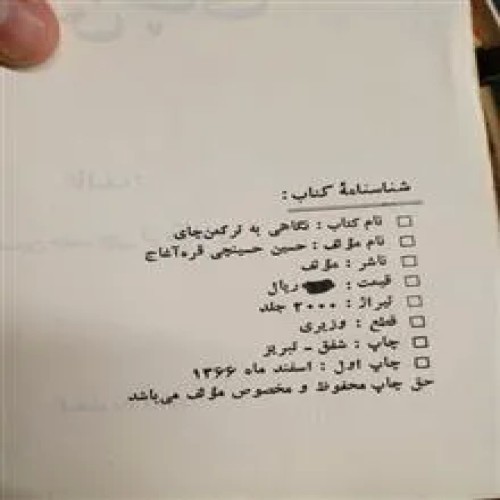 شناسنامهٔ کتاب :
نام کتاب : نگاهی به ترکمن‌چای
نام مؤلف : حسین حسینچی قره‌آغاج
ناشر : مؤلف
قیمت : ریال
تیراژ : ۲۰۰۰ جلد
قطع : وزیری
چاپ : شفق - تبریز
چاپ اول : اسفند ماه ۱۳۶۶
حق چاپ محفوظ و مخصوص مؤلف می‌باشد